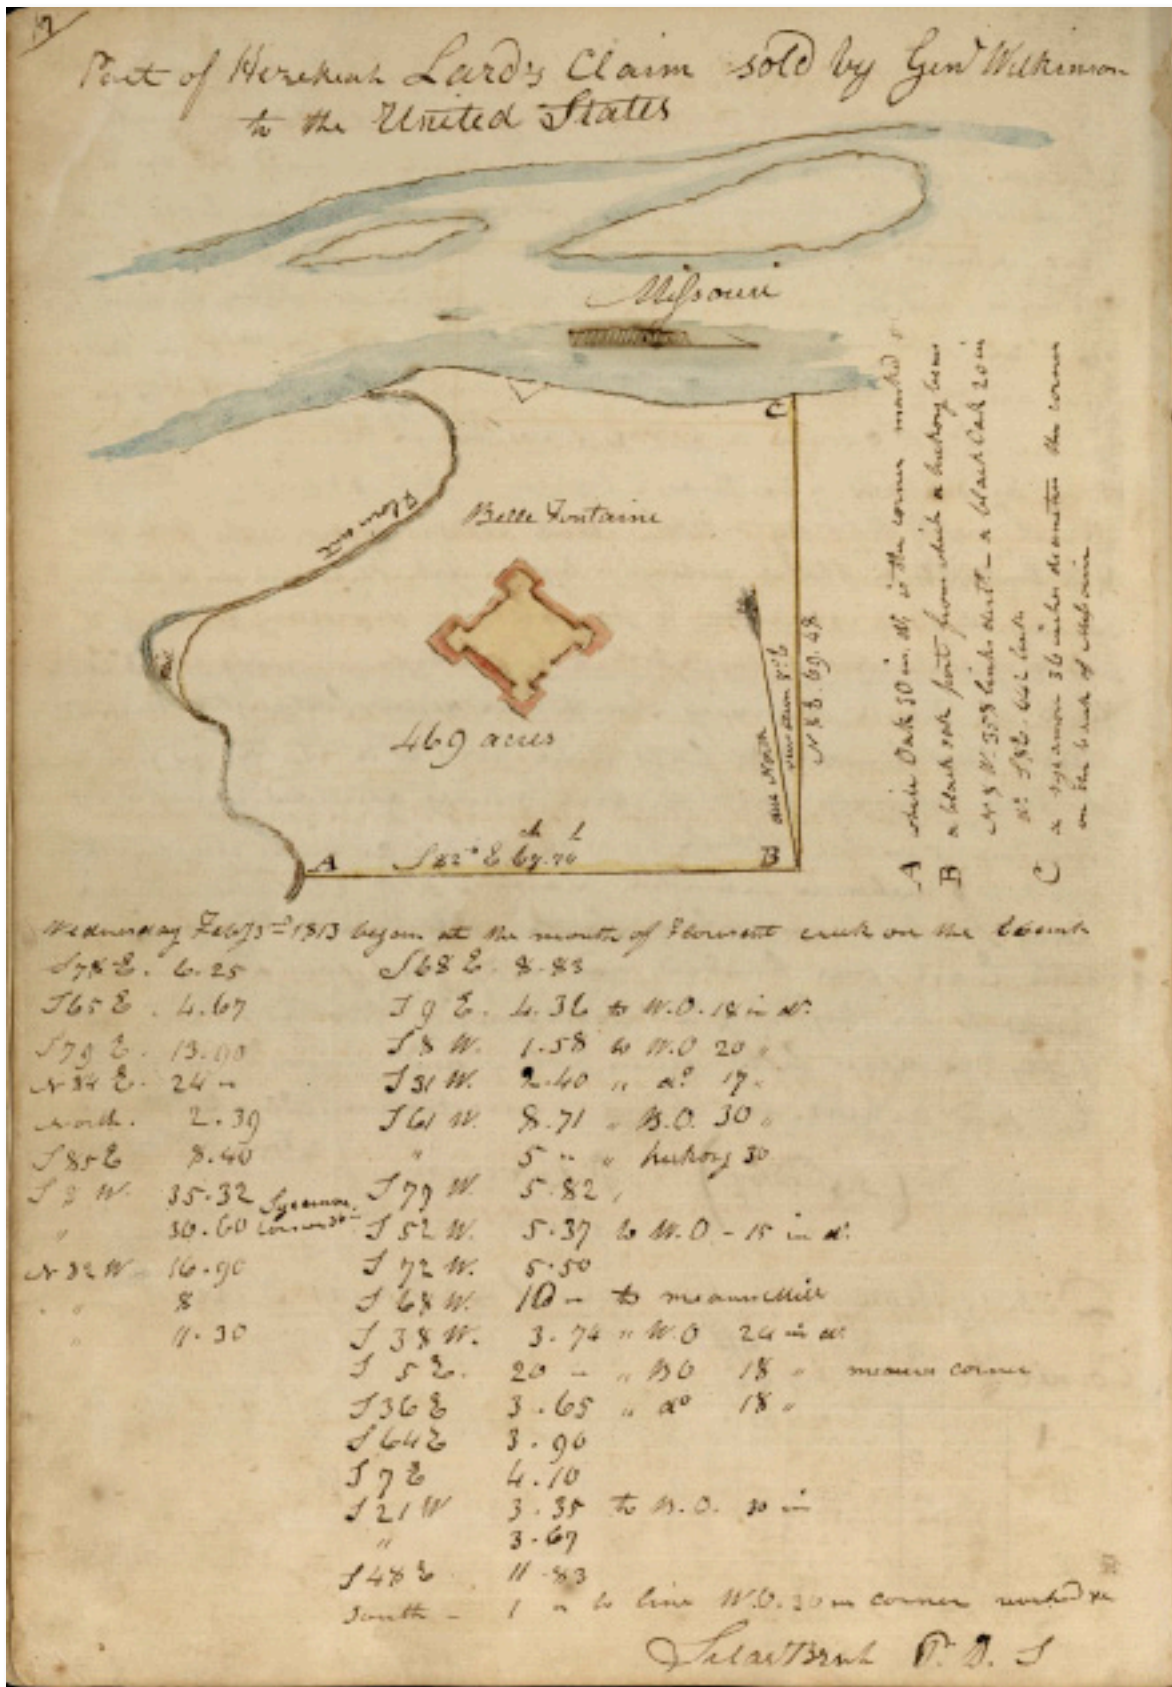 Part of Hezekiah Lard's Claim sold by Genl Wilkinson
to the United States
Missouri
C
Belle Fontaine
469 acres
due North
variation 8° E
N 8 E. 69.48
A
S 82° E 67.76
ch l
B
A white Oak 30 in. dr. is the corner marked
B a black oak post from which a hickory bears
N 8 W. 358 links dist. - a black Oak 20 in
do S 8 E. 662 links
C a sycamore 36 inches diameter the corner
on the bank of Missouri
Wednesday Feby 3rd 1813 began at the mouth of Florisent creek on the E bank
S 78 E. 6.25
S 65 E. 4.67
S 79 E. 13.90
N 84 E. 24 -
North. 2.39
S 85 E 8.40
S 2 W. 35.32 Sycamore
" 30.60 corner 36 in
N 82 W 16.90
" " 8
" 11.30
S 68 E. 8.83
S 9 E. 4.36 to W.O. 18 in dr.
S 8 W. 1.58 to W.O 20 "
S 31 W. 2.40 " do 17 "
S 61 W. 8.71 " B.O. 30 "
" 5 " " hickory 30
S 79 W. 5.82
S 52 W. 5.37 to W.O - 15 in dr.
S 72 W. 5.50
S 68 W. 10 - to
S 38 W. 3.74 " W.O 24 in dr
S 5 E. 20 - " BO 18 " corner
S 36 E 3.65 " do 18 "
S 64 E 3.90
S 7 E 4.10
S 21 W 3.35 to B.O. 30 in
" 3.67
S 48 E 11.83
South - 1 " to line W.O. 30 in corner marked &c
Silas Bent P. D. S